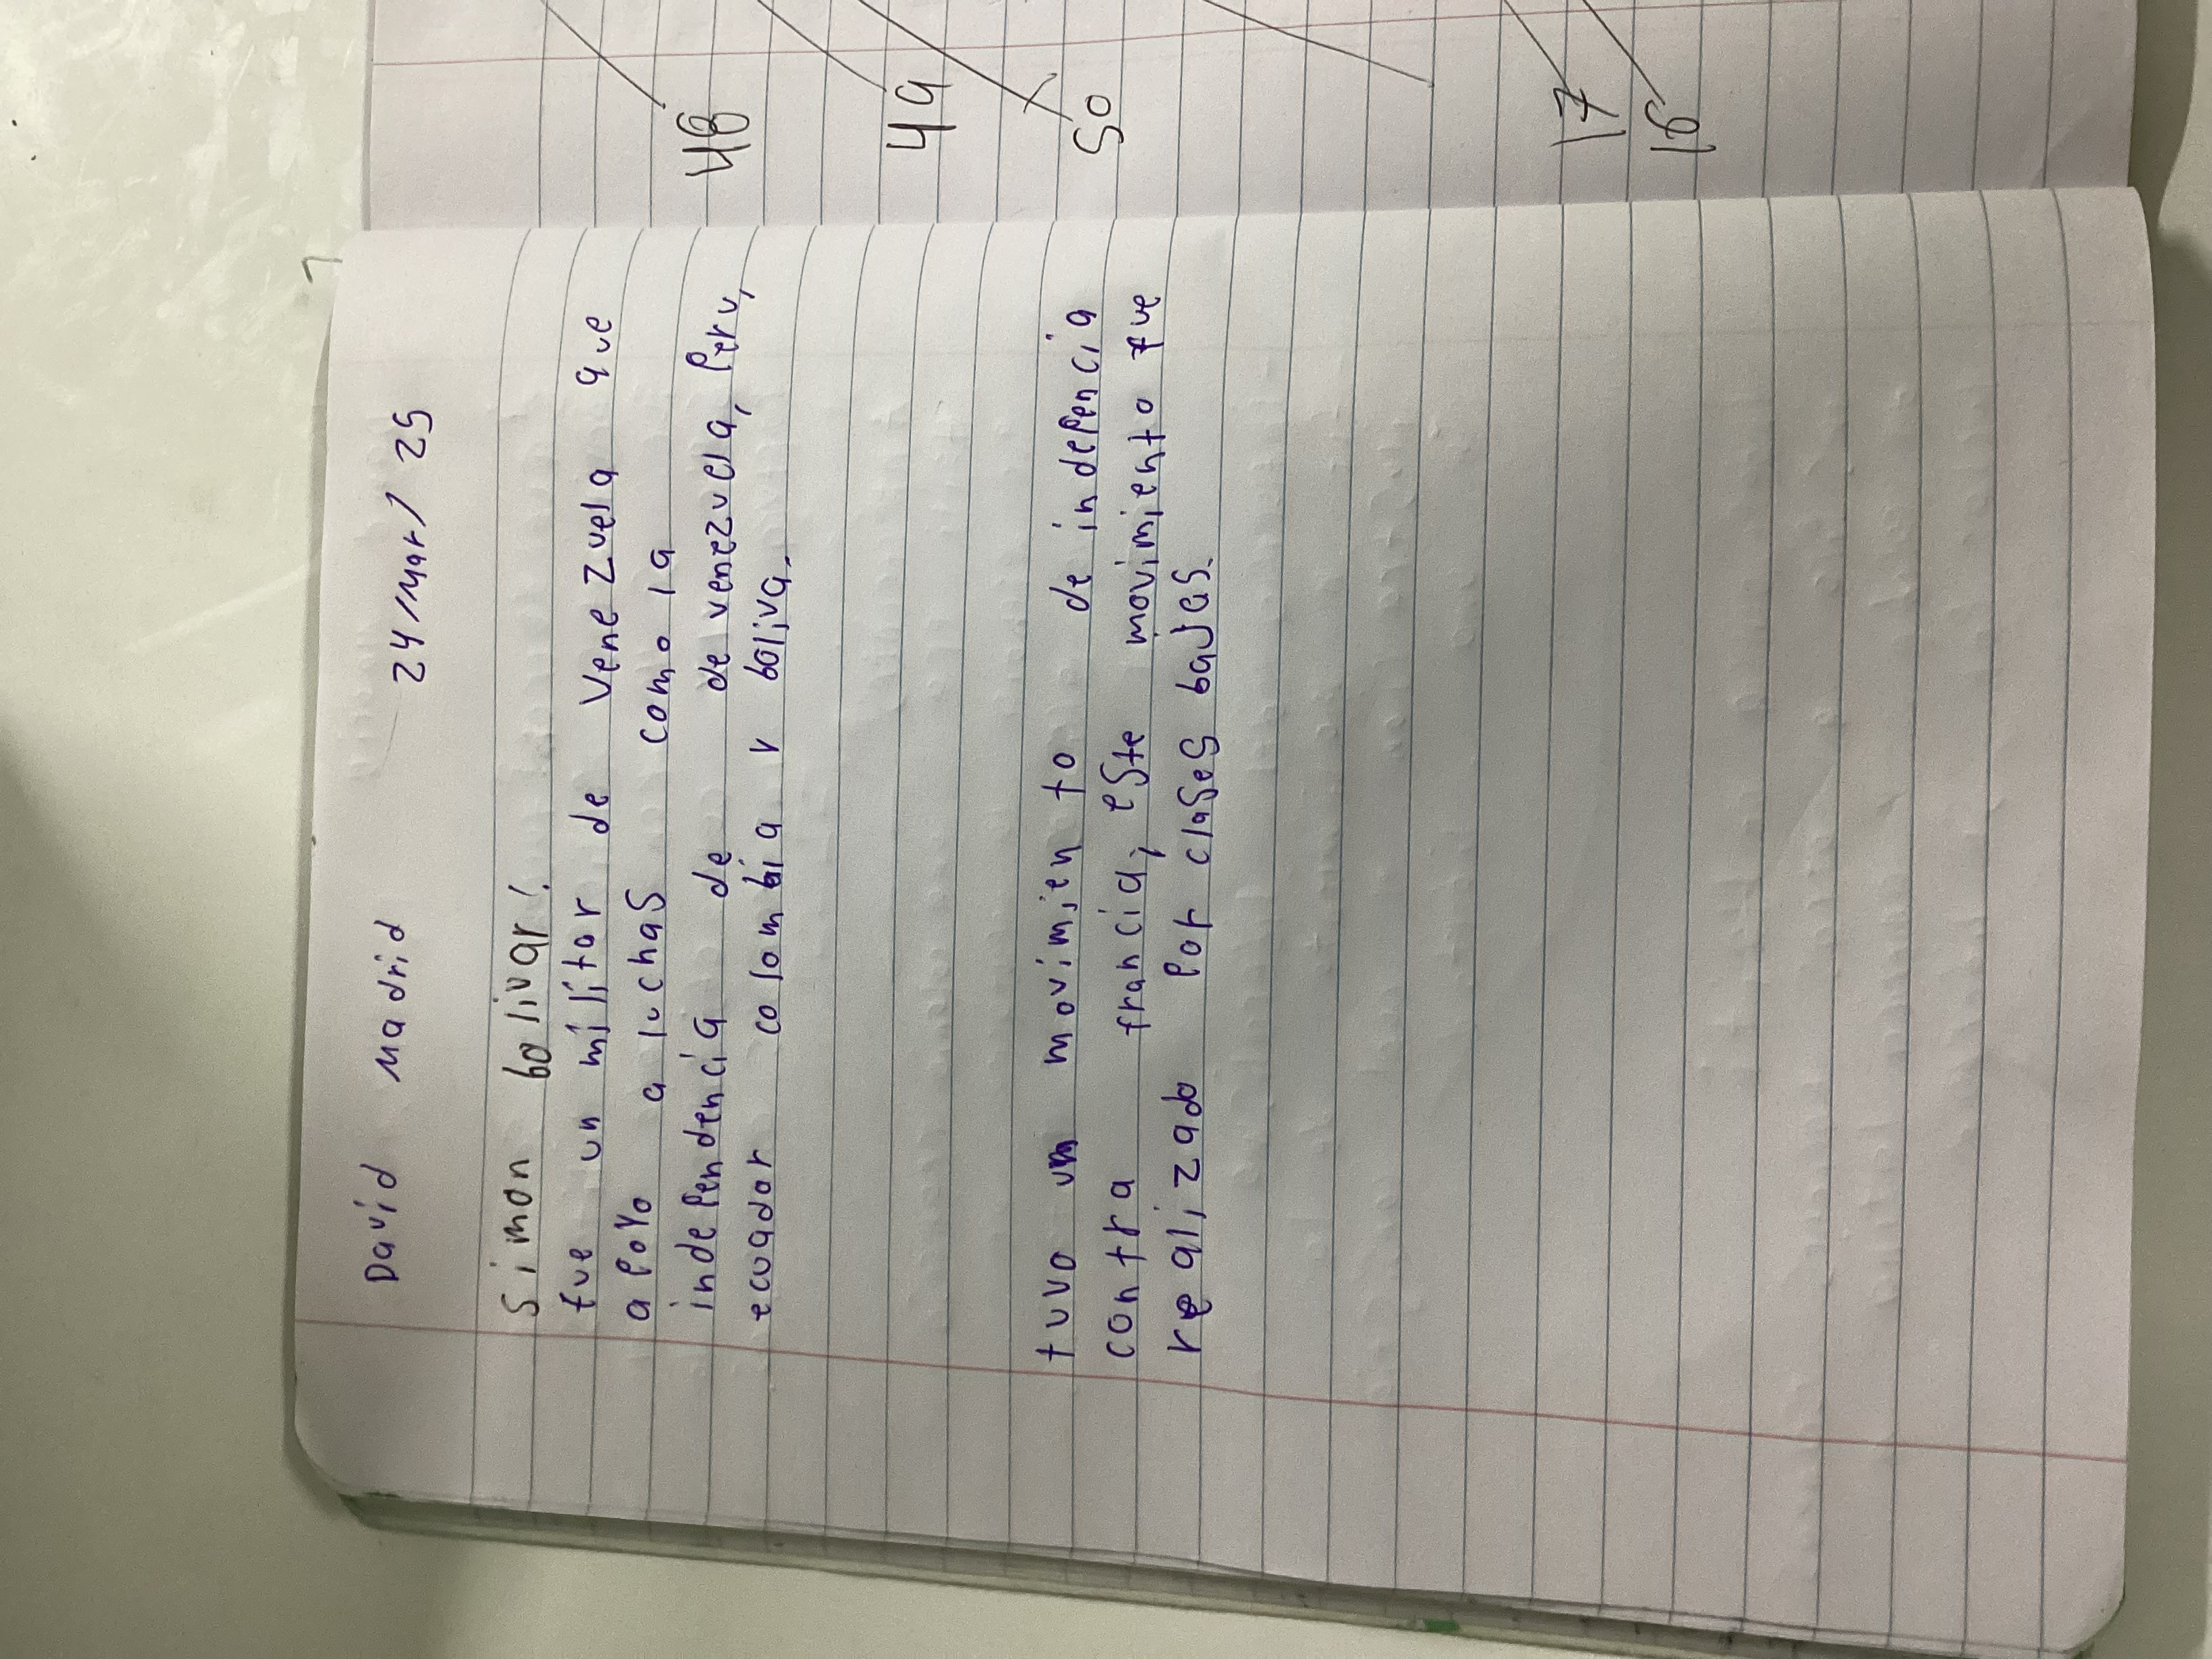 David Madrid 24/Mar/25
Simon bolivar!
fue un militar de Venezuela que
apoyo a luchas como la
independencia de de venezuela, Peru,
ecuador colombia y boliva,
tuvo un movimiento de indepencia
contra francia, este movimiento fue
realizado por clases bajas.
48
49
50
17
18